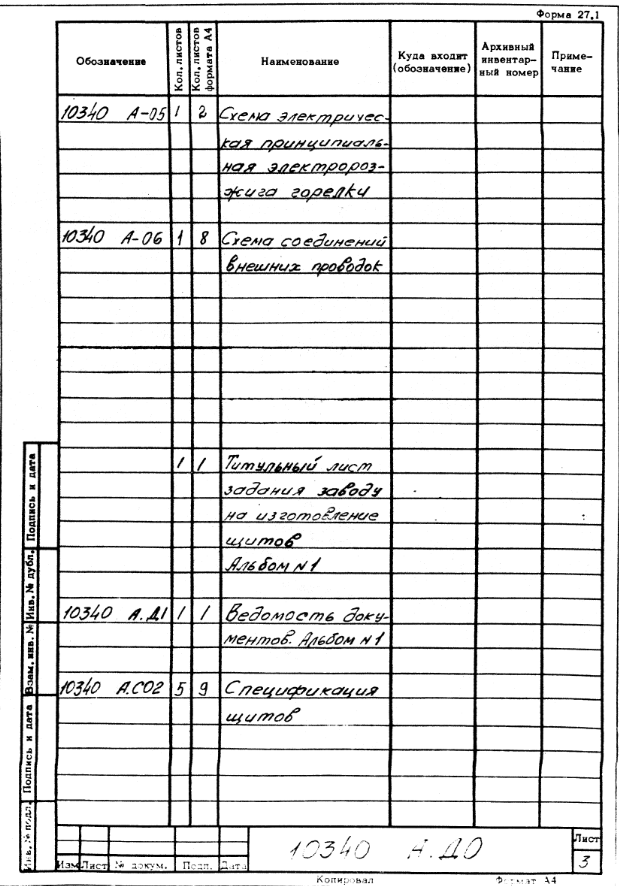 Форма 27.1
Обозначение Кол. листов Кол. листов формата А4 Наименование Куда входит (обозначение) Архивный инвентар-ный номер Приме-чание
10340 А-05 1 2 Схема электричес-
кая принципиаль-
ная электророз-
жига горелки
10340 А-06 1 8 Схема соединений
внешних проводок
1 1 Титульный лист
задания заводу
на изготовление
щитов
Альбом N1
10340 А.Д1 1 1 Ведомость доку-
ментов. Альбом N1
10340 А.СО2 5 9 Спецификация
щитов
Инв. № подл. Подпись и дата Взам. инв. № Инв. № дубл. Подпись и дата
Изм Лист № докум. Подп. Дата
10340 А.ДО
Лист
3
Копировал Формат А4